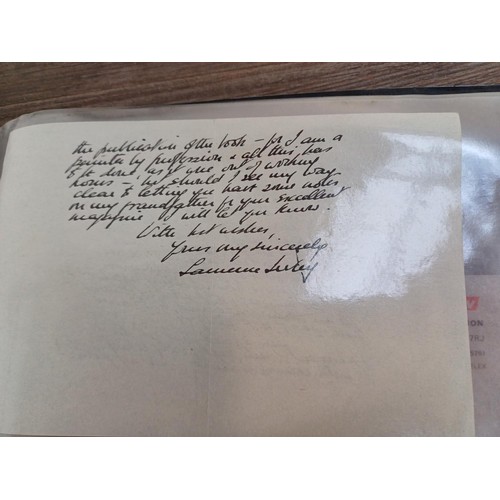 the publication of the book – for I am a
painter by profession & all this, has
to be done, as it were out of working
hours – but should I see my way
clear to letting you have some notes
on my grandfather for your excellent
magazine I will let you know.
With best wishes,
Yours very sincerely
Laurence
ION